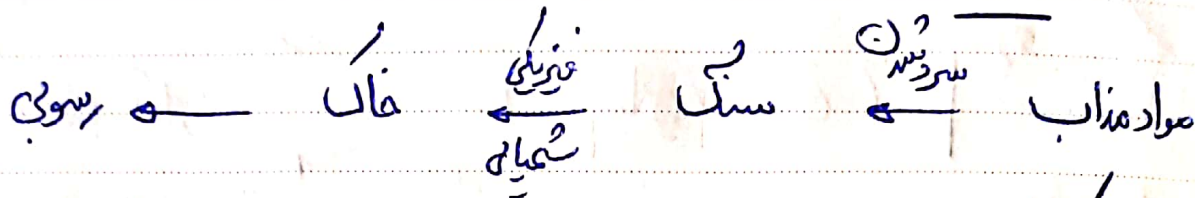 مواد مذاب ← سرد شدن سنگ ← فیزیکی شیمیایی خاک ← رسوبی